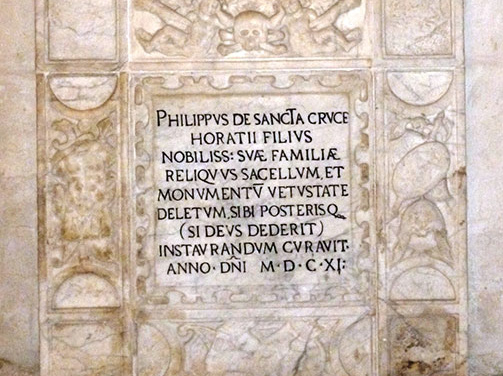 PHILIPPVS DE SANCTA CRVCE
HORATII FILIVS
NOBILISS: SVÆ FAMILIÆ
RELIQVVS SACELLVM, ET
MONVMENTV̄ VETVSTATE
DELETVM, SIBI POSTERISQ
(SI DEVS DEDERIT)
INSTAVRANDVM CVRAVIT·
ANNO · DÑI M·D·C·XI: